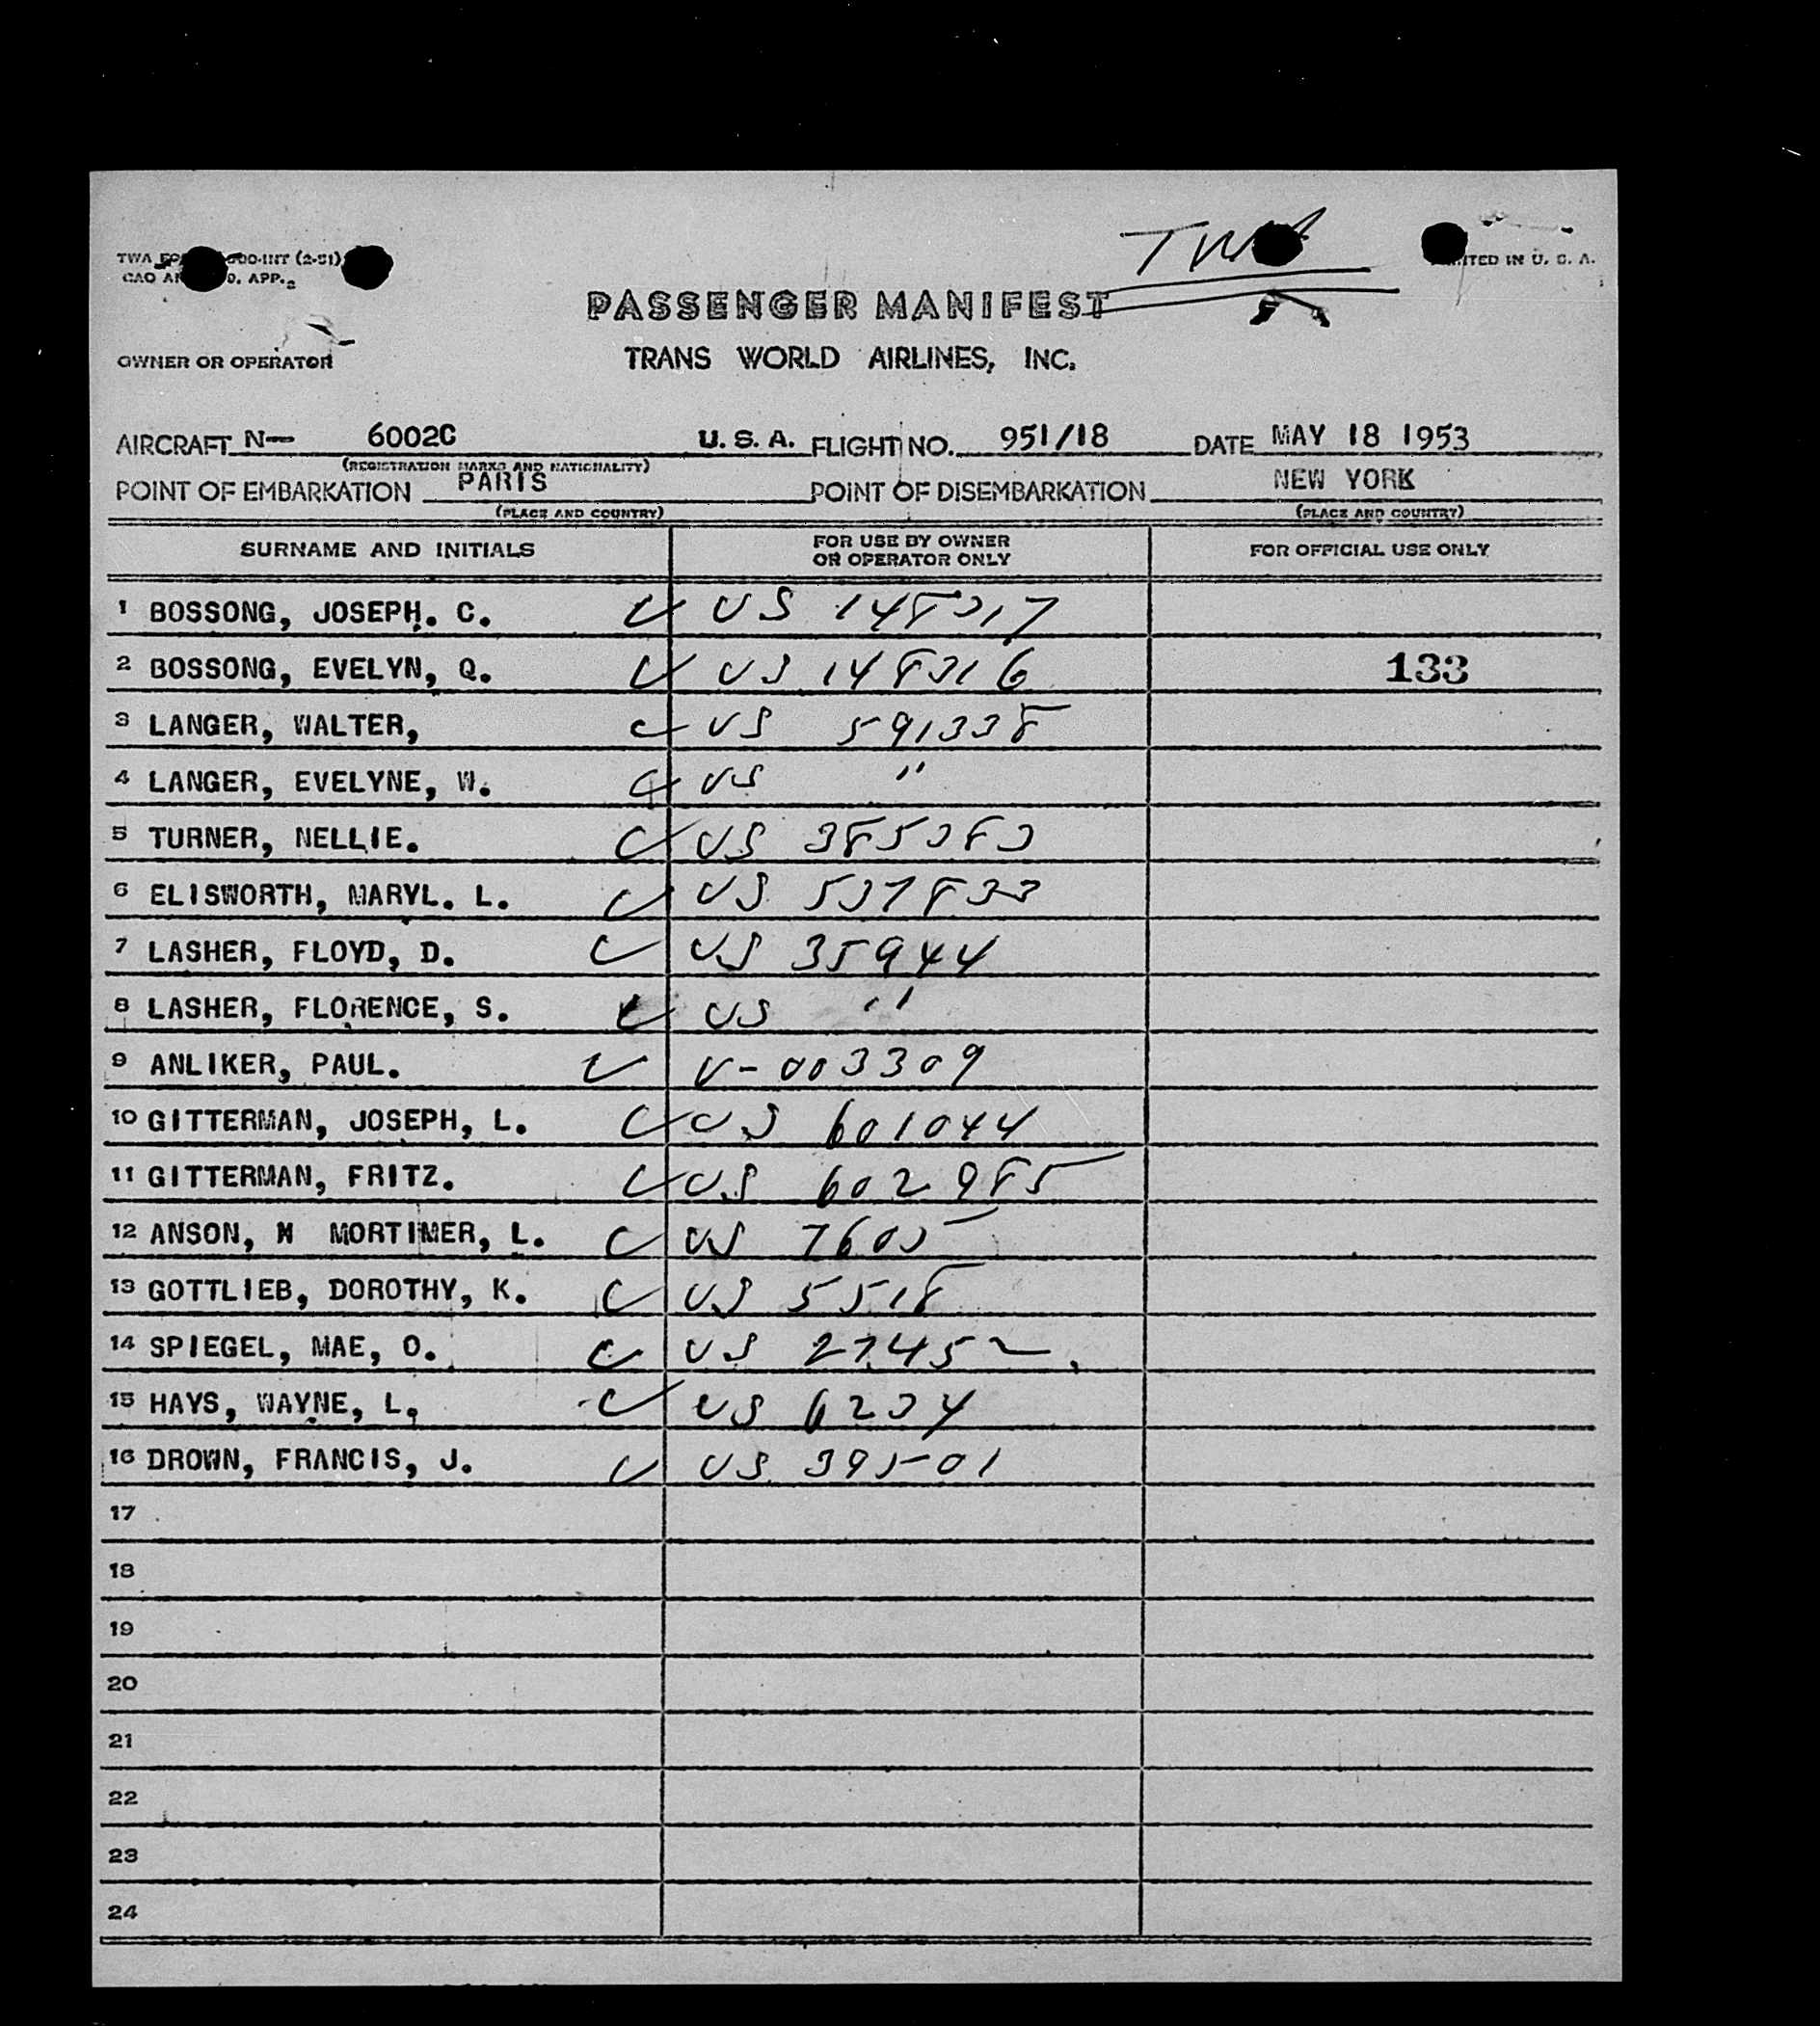 TWA
500-INT (2-51)
CAO D. APP.
PRINTED IN U. S. A.
PASSENGER MANIFEST
OWNER OR OPERATOR TRANS WORLD AIRLINES, INC.
AIRCRAFT N— 6002C U. S. A. FLIGHT NO. 951/18 DATE MAY 18 1953
(REGISTRATION MARKS AND NATIONALITY)
POINT OF EMBARKATION PARIS POINT OF DISEMBARKATION NEW YORK
(PLACE AND COUNTRY) (PLACE AND COUNTRY)
SURNAME AND INITIALS FOR USE BY OWNER OR OPERATOR ONLY FOR OFFICIAL USE ONLY
1 BOSSONG, JOSEPH. C. US 148317
2 BOSSONG, EVELYN, Q. US 148316 133
3 LANGER, WALTER, US 591338
4 LANGER, EVELYNE, W. US "
5 TURNER, NELLIE. US
6 ELISWORTH, MARYL. L. US
7 LASHER, FLOYD, D. US 35944
8 LASHER, FLORENCE, S. US "
9 ANLIKER, PAUL. V-003309
10 GITTERMAN, JOSEPH, L. US 601044
11 GITTERMAN, FRITZ. US 602985
12 ANSON, M MORTIMER, L. US 7605
13 GOTTLIEB, DOROTHY, K. US 5518
14 SPIEGEL, MAE, O. US 27452
15 HAYS, WAYNE, L, US 6234
16 DROWN, FRANCIS, J. US 39501
17
18
19
20
21
22
23
24